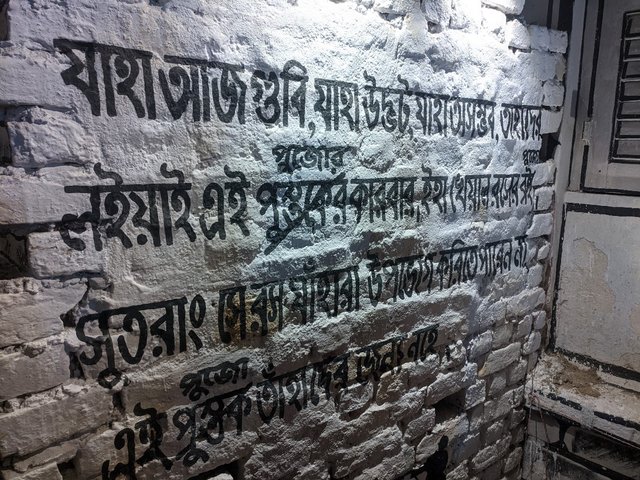 যাহা আজগুবি, যাহা উদ্ভট, যাহা অসম্ভব, তাহাদের
পুজোর
লইয়াই এই পুস্তকের কারবার, ইহা খেয়াল রসের বই,
সুতরাং সে রস যাঁহারা উপভোগ করিতে পারেন না,
পুজো
এই পুস্তক তাঁহাদের জন্য নহে,